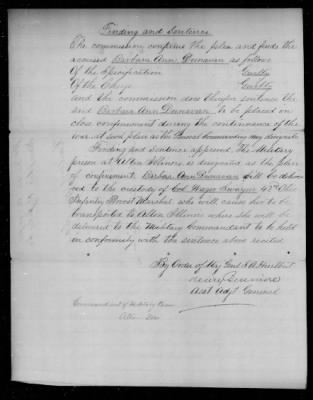 Finding and Sentence
The commission confirms the plea and finds the
accused Barbara Ann Dunavan as follows
Of the Specification Guilty
Of the Charge Guilty
and the commission does therefore sentence the
said Barbara Ann Dunavan to be placed in
close confinement during the continuance of the
war at such place as the General Commanding may designate
Finding and Sentence approved. The Military
prison at Alton Illinois is designated as the place
of confinement. Barbara Ann Dunavan will be deliver-
ed to the custody of Col 42nd Ohio
Infantry Provost Marshal who will cause her to be
transported to Alton Illinois where she will be
delivered to the Military Commandant to be held
in conformity with the sentence above recited
By Order of Maj Genl S A Hurlbut
Henry Binmore
Asst Adjt General
Commandant of Military Prison
Alton Ills